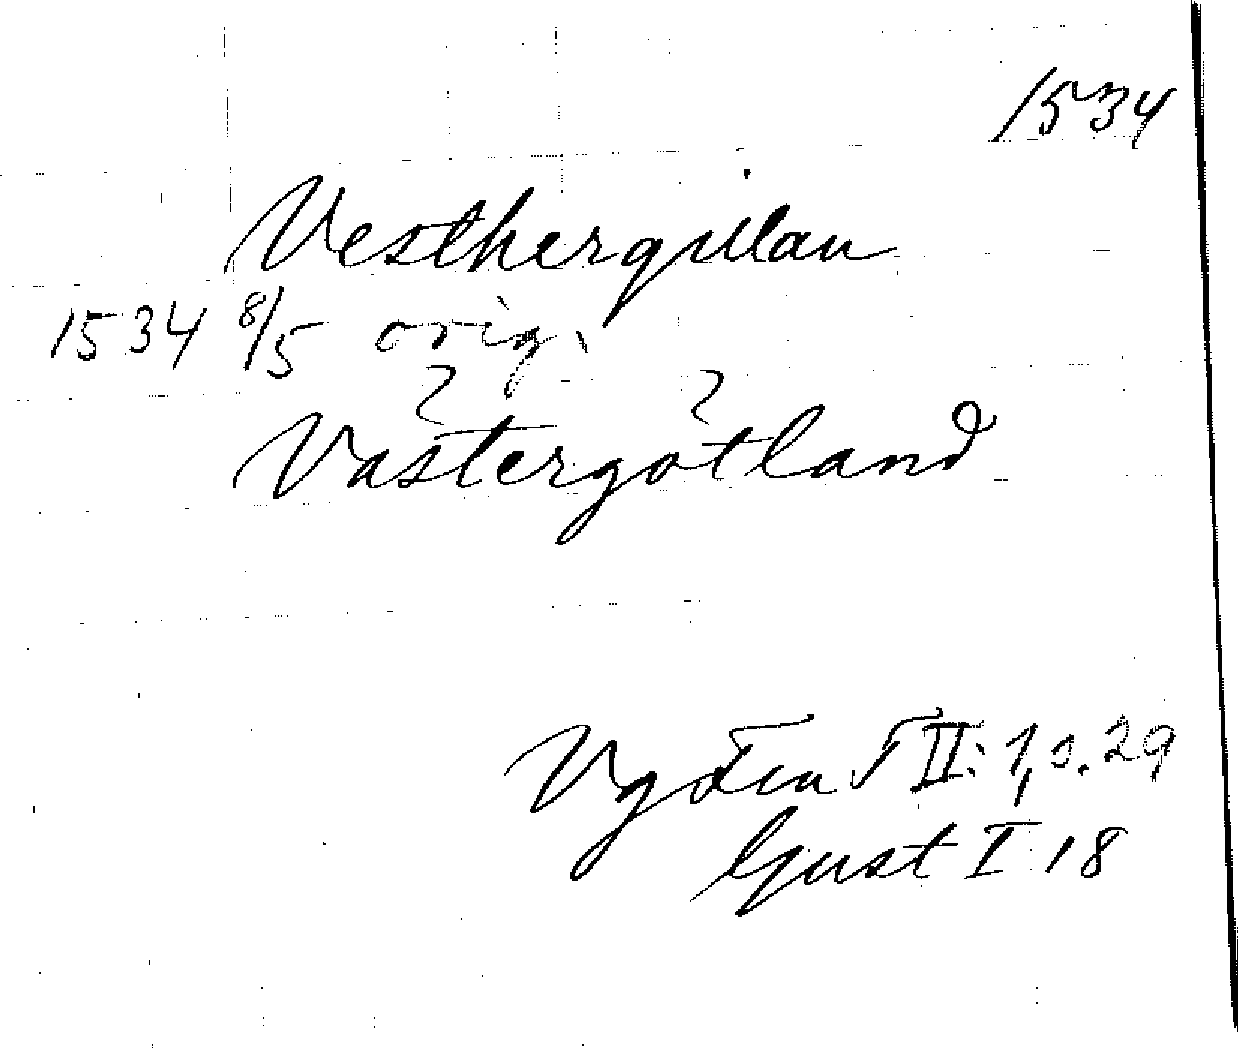 1534
Vesthergillan
1534 8/5 orig.
Västergötland
Vg Fm T II: 1, s. 29
Gust I 18